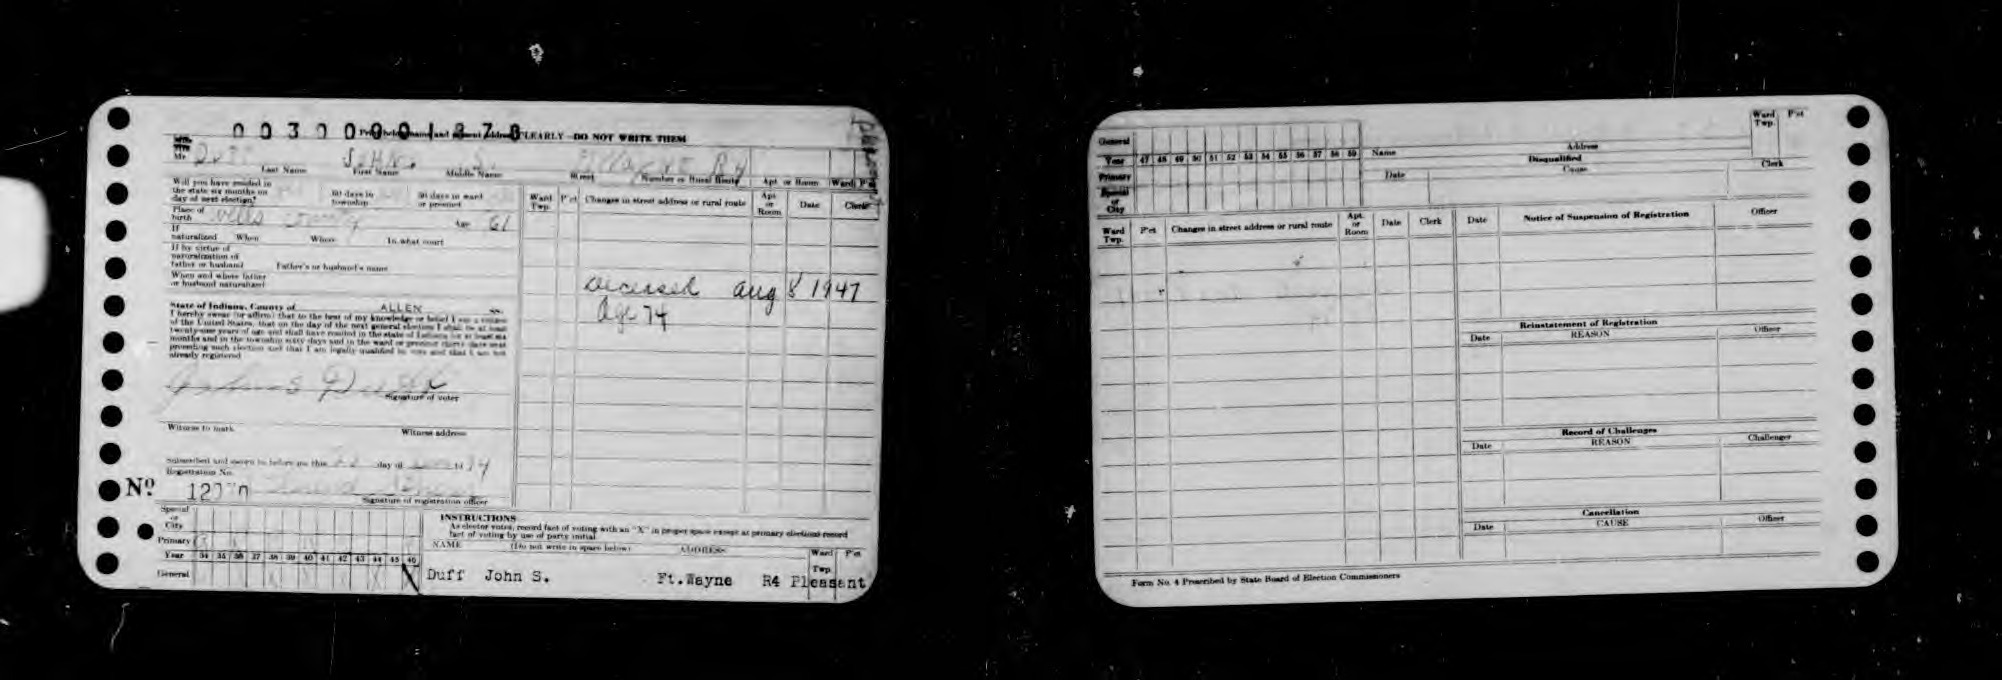 00300001378
Print below name and present address CLEARLY—DO NOT WRITE THEM
Mr. Duff John S. Ft Wayne R4
Last Name First Name Middle Name Street Number or Rural Route Apt. or Room Ward P'ct
Will you have resided in
the state six months on 60 days in 30 days in ward
day of next election? township or precinct
Place of
birth Wells County Age 61
If
naturalized When Where In what court
If by virtue of
naturalization of
father or husband Father's or husband's name
When and where father
or husband naturalized
State of Indiana, County of ALLEN ss.
I hereby swear (or affirm) that to the best of my knowledge or belief I am a citizen
of the United States, that on the day of the next general election I shall be at least
twenty-one years of age and shall have resided in the state of Indiana for at least six
months and in the township sixty days and in the ward or precinct thirty days next
preceding such election and that I am legally qualified to vote and that I am not
already registered
John S Duff
Signature of voter
Witness to mark Witness address
Subscribed and sworn to before me this day of 1934
Registration No.
No.
Signature of registration officer
Ward
Twp. P'ct Changes in street address or rural route Apt.
or
Room Date Clerk
deceased aug 8 1947
age 74
Special
or
City
Primary
Year 34 35 36 37 38 39 40 41 42 43 44 45 46
General
INSTRUCTIONS
As elector votes, record fact of voting with an "X" in proper space except at primary elections record
fact of voting by use of party initial.
NAME (Do not write in space below) ADDRESS Ward
Twp. P'ct
Duff John S. Ft.Wayne R4 Pleasant
General
Year 47 48 49 50 51 52 53 54 55 56 57 58 59
Primary
Special
or
City
Name Address Ward
Twp. P'ct
Disqualified
Date Cause Clerk
Ward
Twp. P'ct Changes in street address or rural route Apt.
or
Room Date Clerk
Date Notice of Suspension of Registration Officer
Reinstatement of Registration
Date REASON Officer
Record of Challenges
Date REASON Challenger
Cancellation
Date CAUSE Officer
Form No. 4 Prescribed by State Board of Election Commissioners